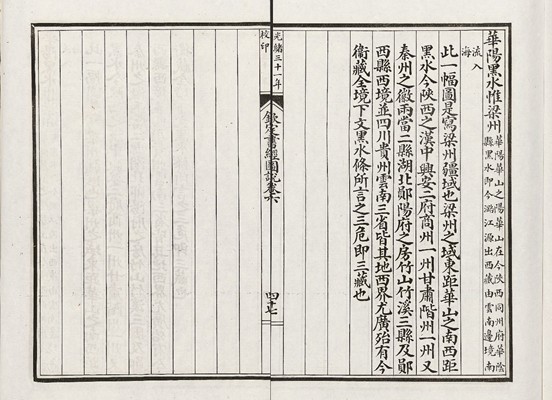 華陽黑水惟梁州 華陽華山之陽華山在今陝西同州府華陰縣黑水即今潞江源出西藏由雲南邊境南
流入海
此一幅圖是寫梁州疆域也梁州之域東距華山之南西距
黑水今陝西之漢中興安二府商州一州甘肅階州一州又
秦州之徽兩當二縣湖北鄖陽府之房竹山竹溪三縣及鄖
西縣西境並四川貴州雲南三省皆其地西界尤廣殆有今
衞藏全境下文黑水條所言之三危即三藏也
欽定書經圖說卷六
四十七
光緒三十一年
校印